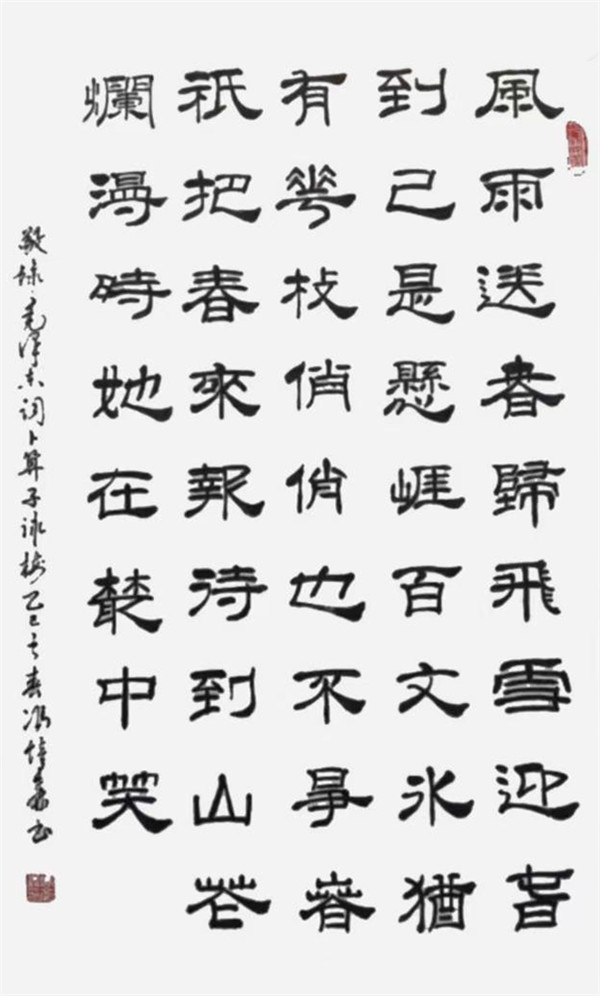 風雨送春歸飛雪迎春
到已是懸崖百丈冰猶
有花枝俏俏也不爭春
祇把春來報待到山花
爛漫時她在叢中笑
敬錄毛澤东词卜算子詠梅乙巳之春